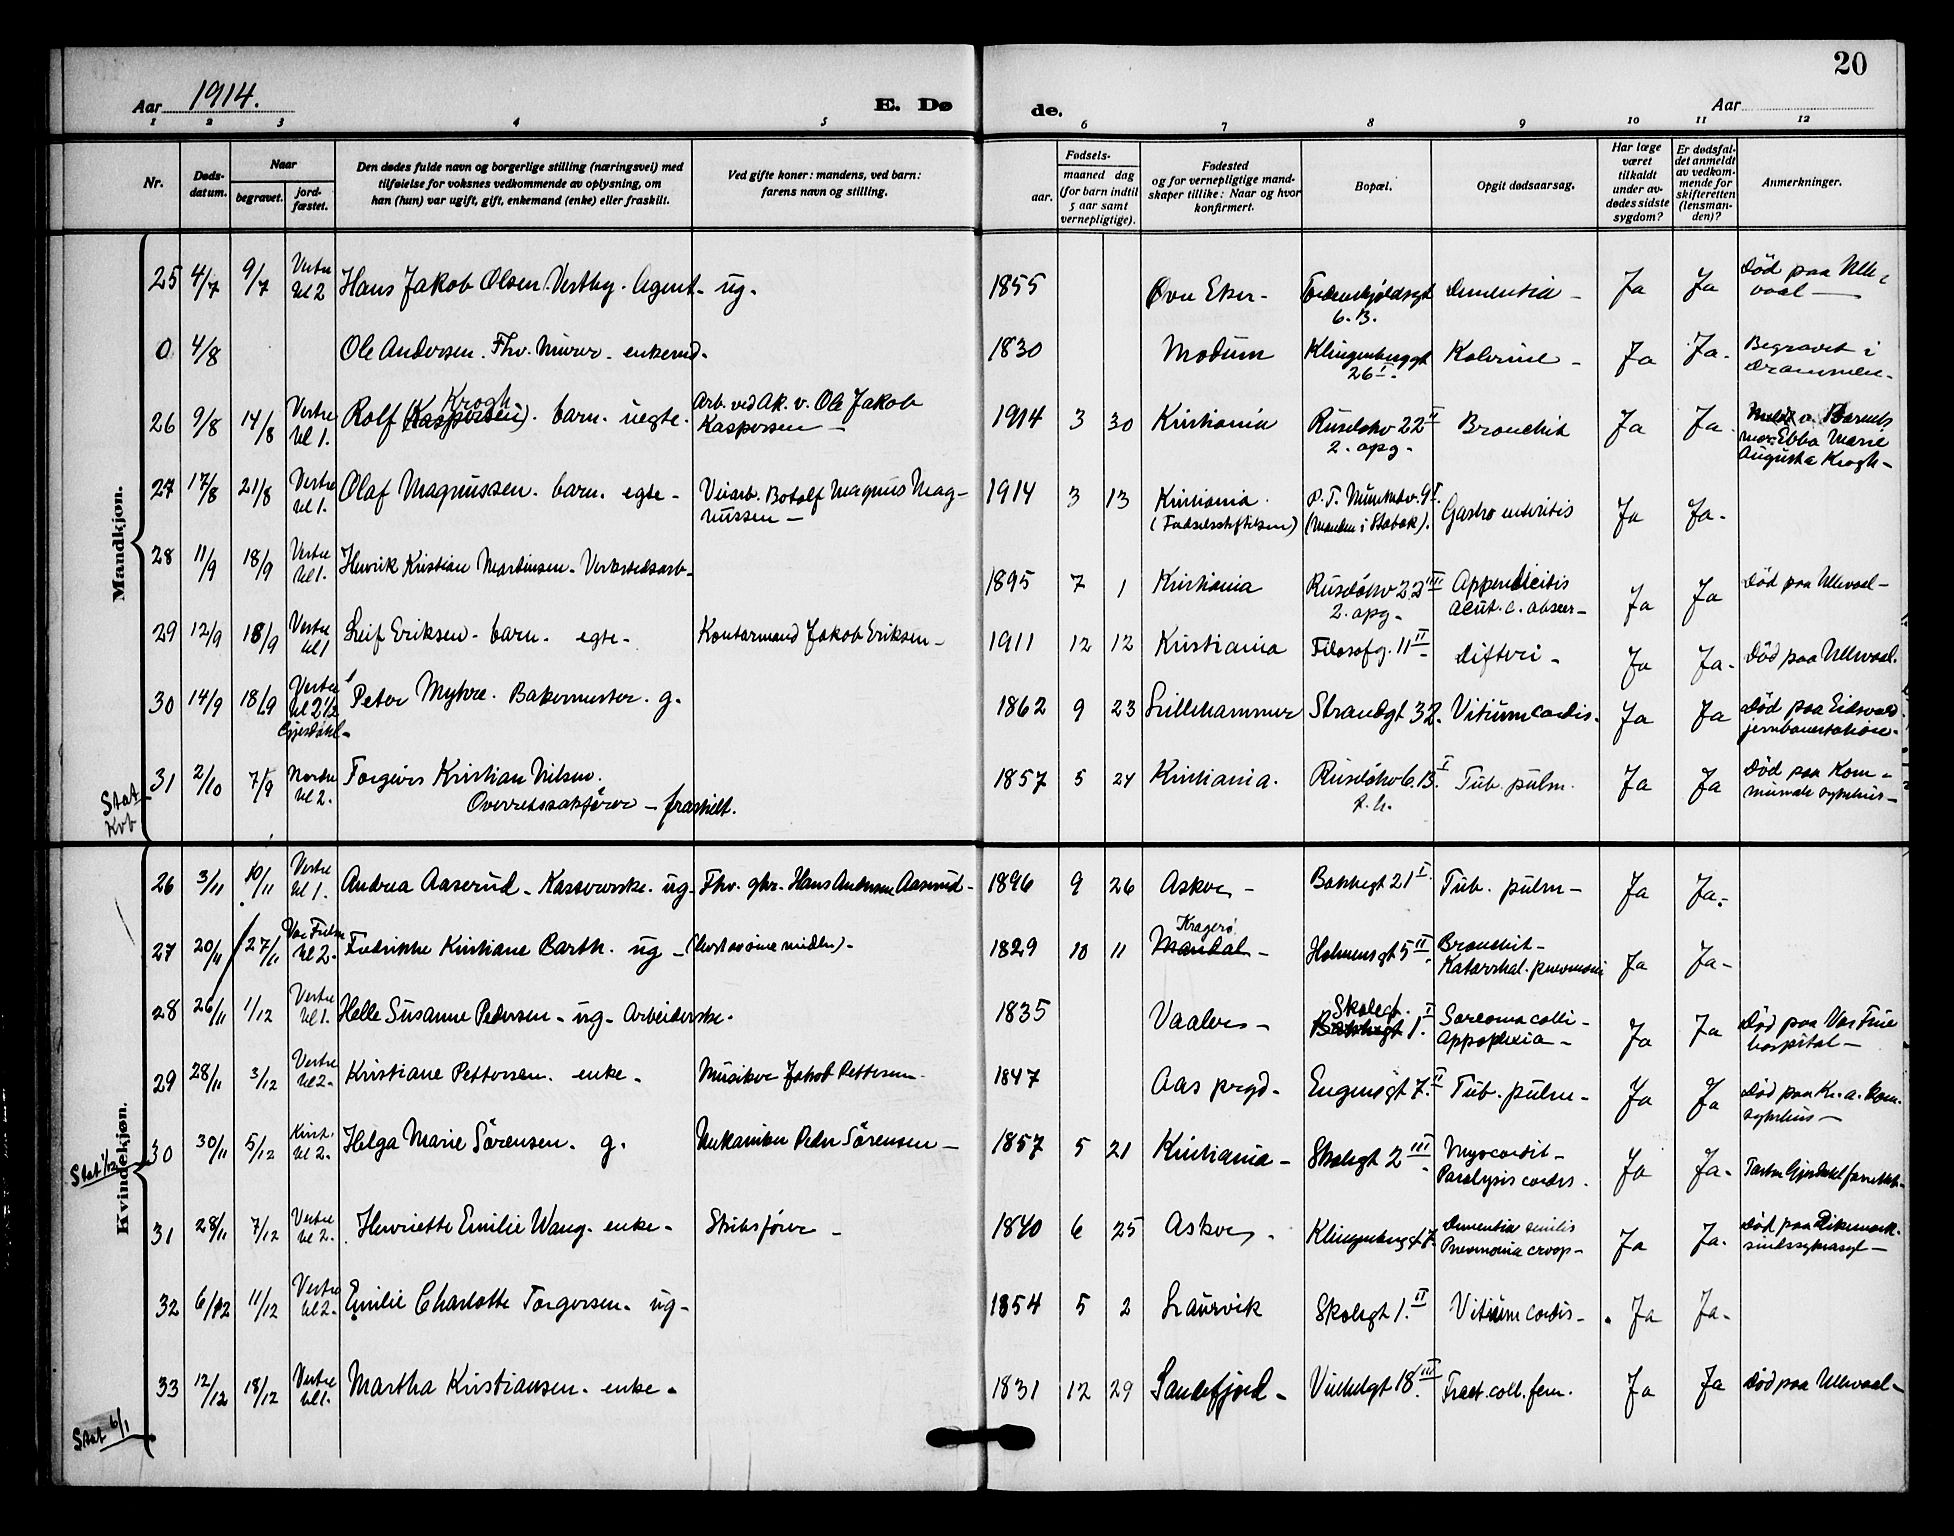 20
Aar 1914.
E. Dø
de.
Aar
1 2 3 4 5 6 7 8 9 10 11 12
Nr.
Døds-
datum.
Naar
begravet.
jord-
fæstet.
Den dødes fulde navn og borgerlige stilling (næringsvei) med
tilføielse for voksnes vedkommende av oplysning, om
han (hun) var ugift, gift, enkemand (enke) eller fraskilt.
Ved gifte koner: mandens, ved barn:
farens navn og stilling.
Fødsels-
aar.
maaned dag
(for barn indtil
5 aar samt
vernepligtige).
Fødested
og for vernepligtige mand-
skaper tillike: Naar og hvor
konfirmert.
Bopæl.
Opgit dødsaarsag.
Har læge
været
tilkaldt
under av-
dødes sidste
sygdom?
Er dødsfal-
det anmeldt
av vedkom-
mende for
skifteretten
(lensman-
den)?
Anmerkninger.
Mandkjøn.
25 4/7 9/7 Vestre kl 2 Hans Jakob Olsen Vestby. Agent - ug. 1855 Øvre Eker - Tordenskjoldsgt 6. B. Dementia - Ja Ja Død paa Ulle-
vaal -
0 4/8 Ole Andersen. Fhv. Murer. enkemd. 1830 Modum Klingenberggt 26 I. Ja Ja. Begravet i
Drammen.
26 9/8 14/8 Vestre kl 1. Rolf (Kaspersen) Krogh. barn. uegte. Arb. ved Ak. v. Ole Jakob
Kaspersen - 1914 3 30 Kristiania Ruseløkv 22 II
2. opg. Bronchit Ja Ja
mor: Ebba Marie
Augusta Krogh -
27 17/8 21/8 Vestre kl 1. Olaf Magnussen. barn. egte - Botolf Magnus Mag-
nussen - 1914 3 13 Kristiania.
(Fødselsstiftelsen) p. t. Munkedv. 9 I.
(Manden i Stabæk). Gastro enteritis Ja Ja.
28 11/9 18/9 Vestre kl 1. Henrik Kristian Martinsen. Verkstedsarb. 1895 7 1 Kristiania Ruseløkv 22 III
2. opg - Appendicitis
acut. c. abscer - Ja Ja Død paa Ullevaal -
29 12/9 18/9 Vestre kl 1 Leif Eriksen - barn. egte - Kontormand Jakob Eriksen - 1911 12 12 Kristiania Filosofg. 11 II Difteri - Ja Ja - Død paa Ullevaal.
30 14/9 18/9 Vestre kl 2 1/2
Gjesdahl - Peter Myhre. Bakermester. g. 1862 9 23 Lillehammer Strandgt 32. Vitium cordis. Ja Ja Død paa Eidsvold
jernbanestation.
31 2/10 7/9 Nordre kl 2. Torgeirs Kristian Nilsen.
Overretssakfører - fraskilt. 1857 5 24 Kristiania. Ruseløkv 6. B I
2. h. Tub. pulm. Ja Ja Død paa Kom-
munale sykehus -
Stat
Kvb
Kvindekjøn.
26 3/11 10/11 Vestre kl 1. Andrea Aaserud - Kassererske. ug - Fhv. gbr. Hans Andersen Aaserud - 1896 9 26 Asker - Bakkegt 21 I. Tub. pulm - Ja Ja.
27 20/11 27/11 Vor Frelser kl 2 - Fredrikke Kristiane Barth. ug - (levet av sine midler) - 1829 10 11 Kragerø
Mandal - Holmensgt 5 II Bronchit -
Katarrhal. pneumoni Ja Ja -
28 26/11 1/12 Vestre kl 1. Helle Susanne Pedersen - ug - Arbeiderske. 1835 Vaaler - Skolegt.
Bakkegt 1 I Sarcoma colli -
Appoplexia - Ja Ja Død paa Vor Frue
hospital -
29 28/11 3/12 Vestre kl 2 - Kristiane Pettersen. enke. Musiker Jakob Pettersen 1847 Aas prgd - Eugenisgt 7 II Tub. pulm - Ja Ja Død paa Kr. a. kom.
sykehus -
30 30/11 5/12 kl 2. Helga Marie Sørensen. g. Mekaniker Peder Sørensen - 1857 5 21 Kristiania - Skolegt 2 III Myocardit -
Paralysis cordis. Ja Ja - Pastor Gjesdahl forrettet.
Stat 1/12
31 28/11 7/12 Vestre kl 2. Henriette Emilie Wang. enke - 1840 6 25 Asker. Klingenberggt 7. Dementia senilis
Pneumonia croop - Ja Ja. Død paa Dikemark
sindssykeasyl -
32 6/12 11/12 Vestre kl 2 - Emilie Charlotte Torgersen. ug - 1854 5 2 Laurvik Skolegt 1. II Vitium cordis - Ja Ja -
33 12/12 18/12 Vestre kl 1. Martha Kristiansen. enke. 1831 12 29 Sandefjord - Vinkelgt 18 III Fract. coll. fem. Ja Ja Død paa Ullevaal -
Stat 6/1